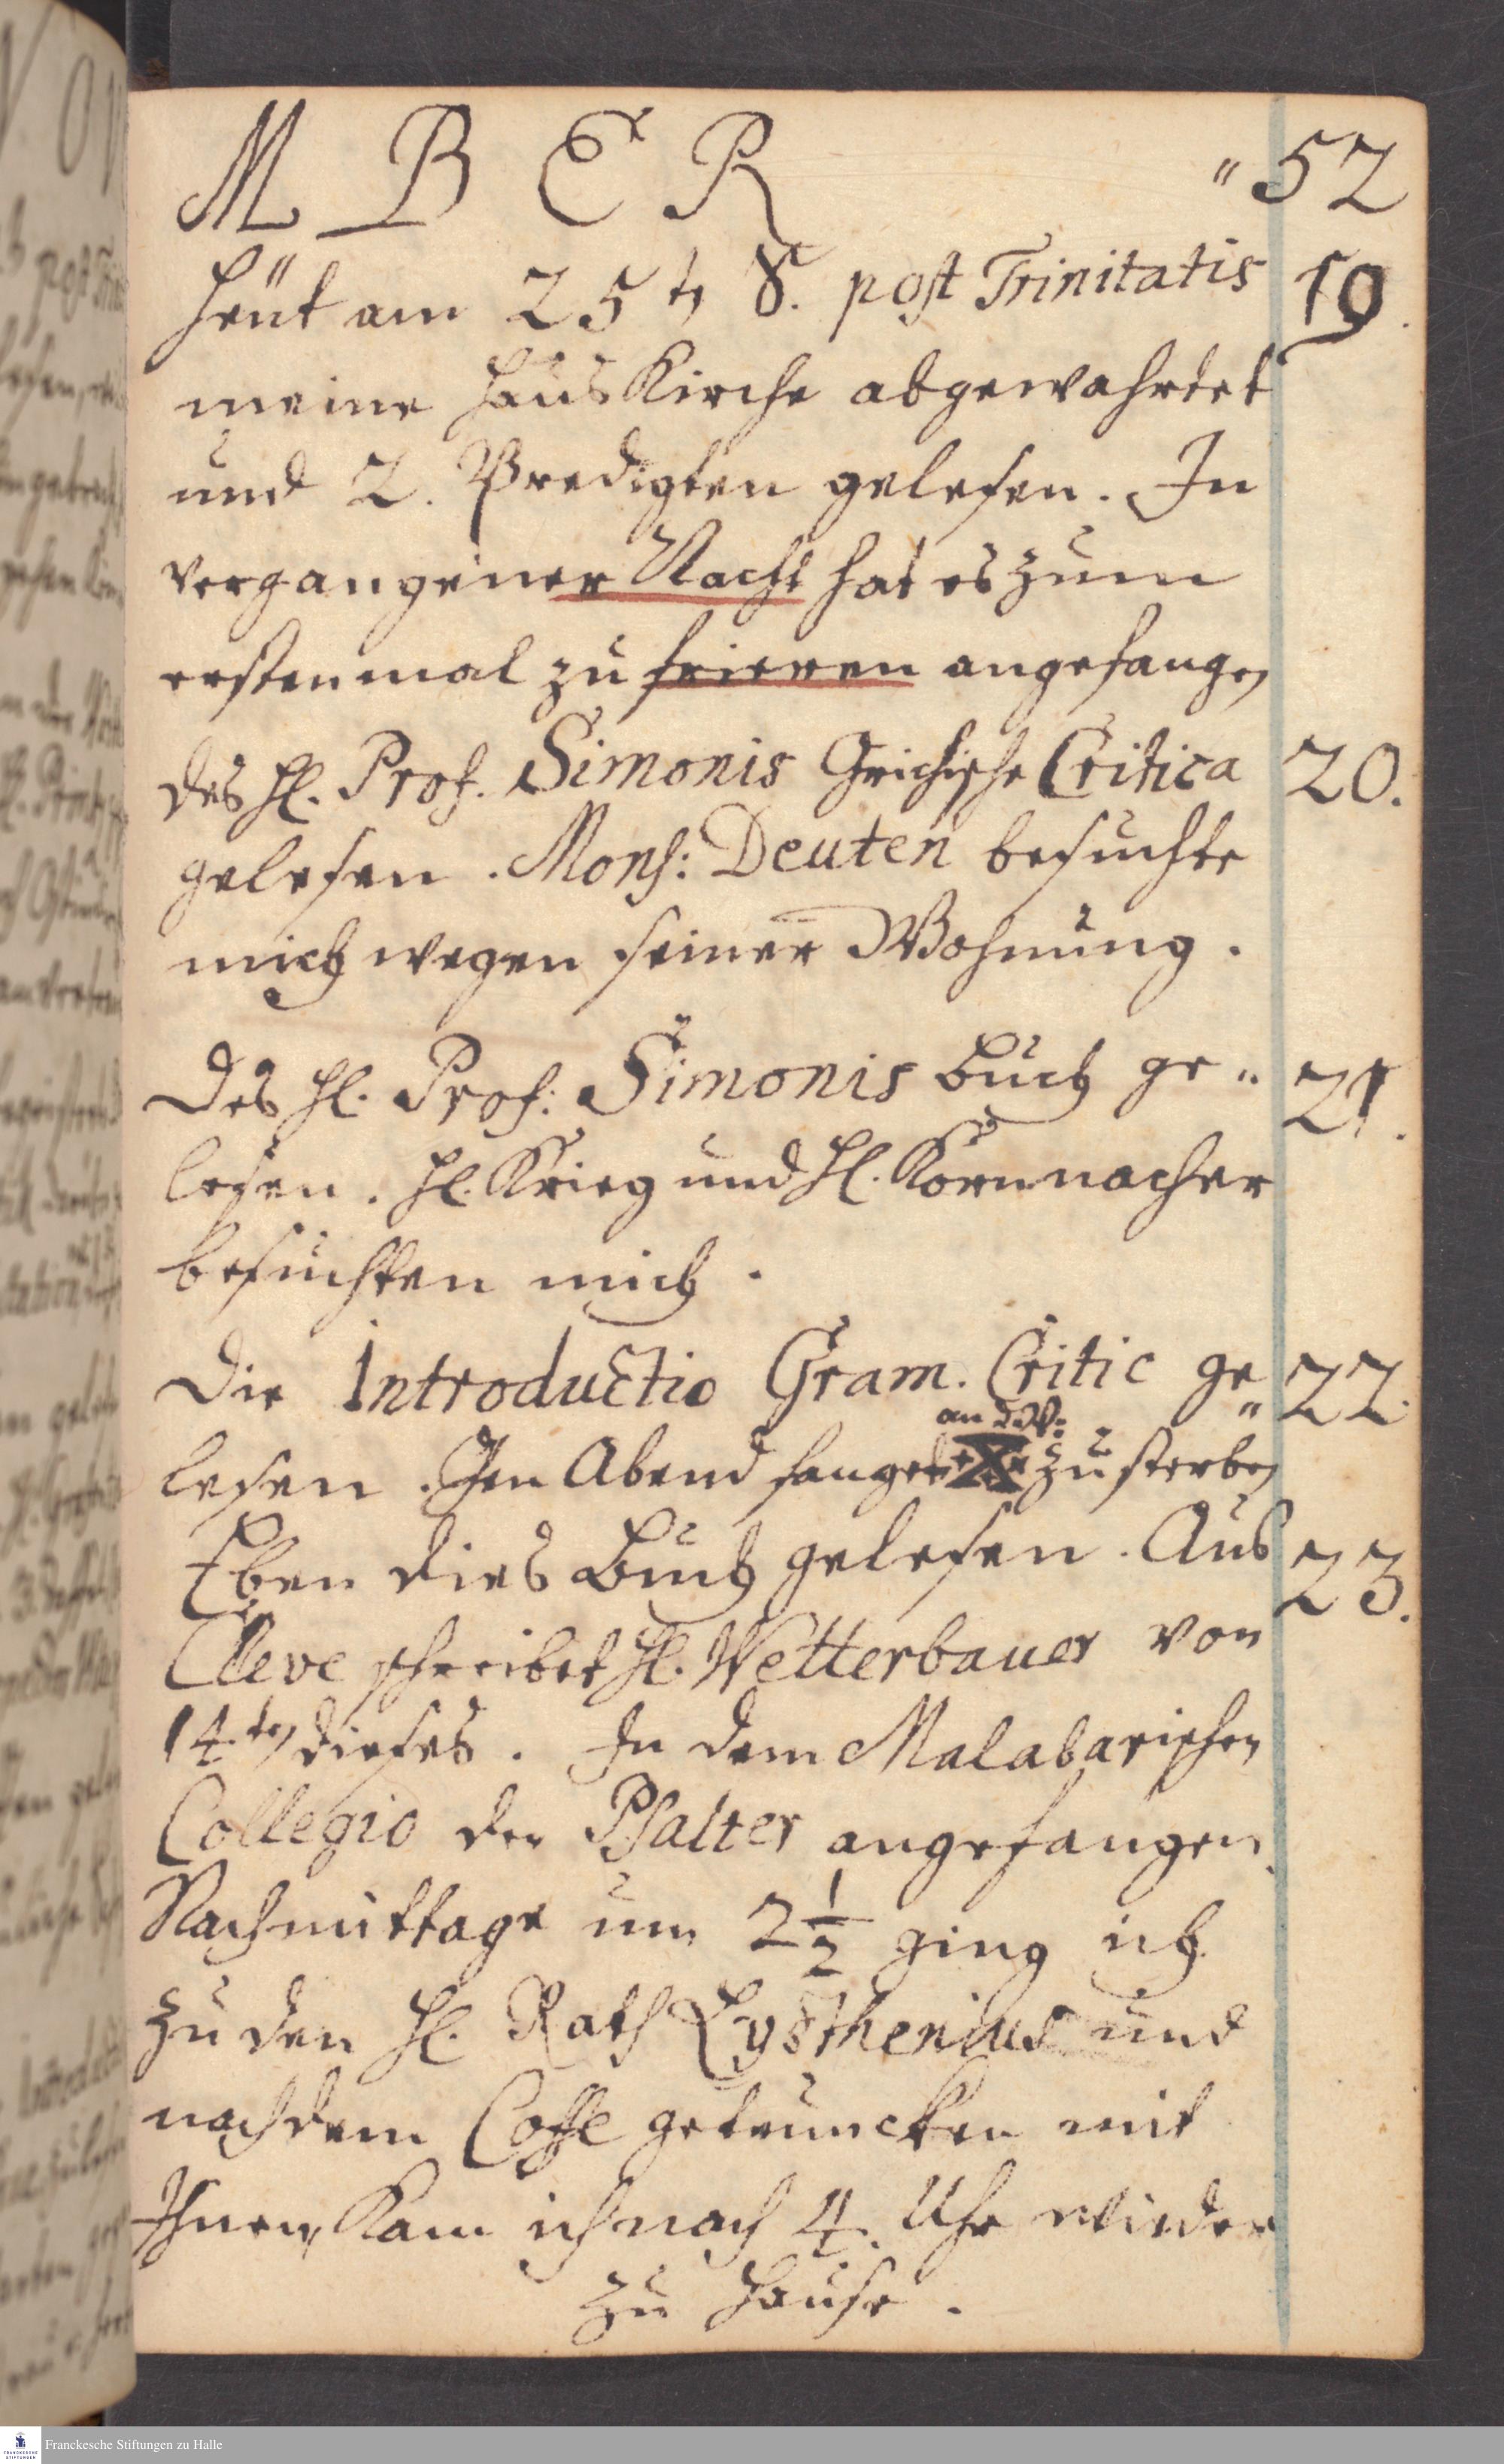 M B E R " 52
Heüt am 25tn S. post Trinitatis 19.
meine Haus Kirche abgewahrtet
und 2. Predigten gelesen. In
vergangener Nacht hat es zum
erstenmal zu frieren angefangen
des H. Prof. Simonis Grichische Critica 20.
gelesen. Mons: Deuten besuchte
mich wegen seiner Wohnung.
Des H. Prof: Simonis Buch ge" 21.
lesen. H. Krieg und H. Kornnacher
besuchten mich.
Die Introductio Gram. Critic ge" 22.
lesen. Den Abend fanget zu sterben
Eben dies Buch gelesen. Aus 23.
Cleve schreibet H. Wetterbauer von
14.ten dieses. In dem Malabarischen
Collegio den Psalter angefangen.
Nachmittage um 2 1/2 ging ich
zu den H. Rath Lysthenius und
nachdem Coffe getruncken mit
Ihnen, Kam ich nach 4. Uhr wieder
zu Hause.
Franckesche Stiftungen zu Halle